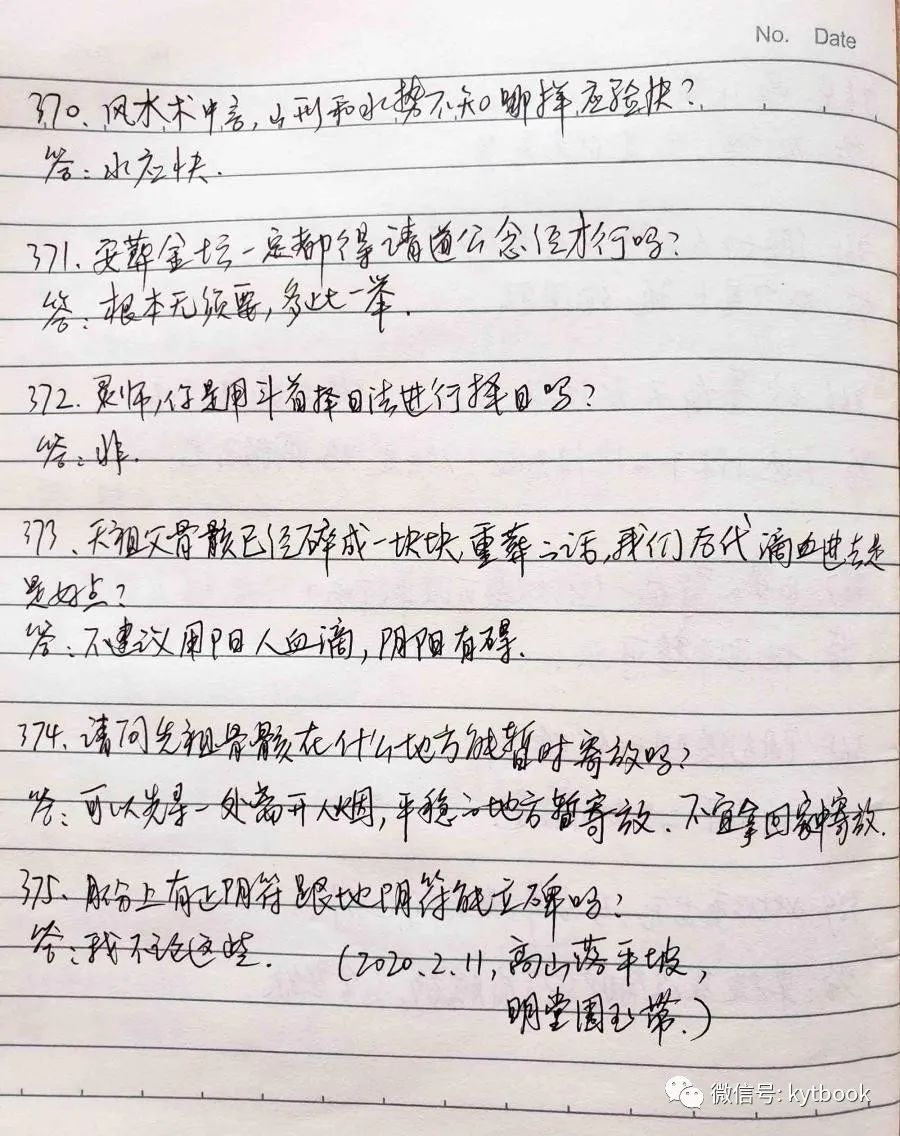 No. Date
370、风水术中言,山形和水势不知哪样应验快?
答:水应快.
371.安葬金坛一定都得请道公念经才行吗?
答:根本无须要,多此一举.
372.灵师,你是用斗首择日法进行择日吗?
答:非.
373、天祖父骨骸已经碎成一块块,重葬的话,我们后代滴血进去是
是好点?
答:不建议用阳人血滴,阴阳有碍.
374.请问先祖骨骸在什么地方能暂时寄放吗?
答:可以先寻一处离开人烟,平稳的地方暂寄放.不宜拿回家中寄放.
375、月份上有正阴符跟地阴符能立碑吗?
答:我不论这些. (2020.2.11,高山落平坡,
明堂围玉带.)
微信号: kytbook